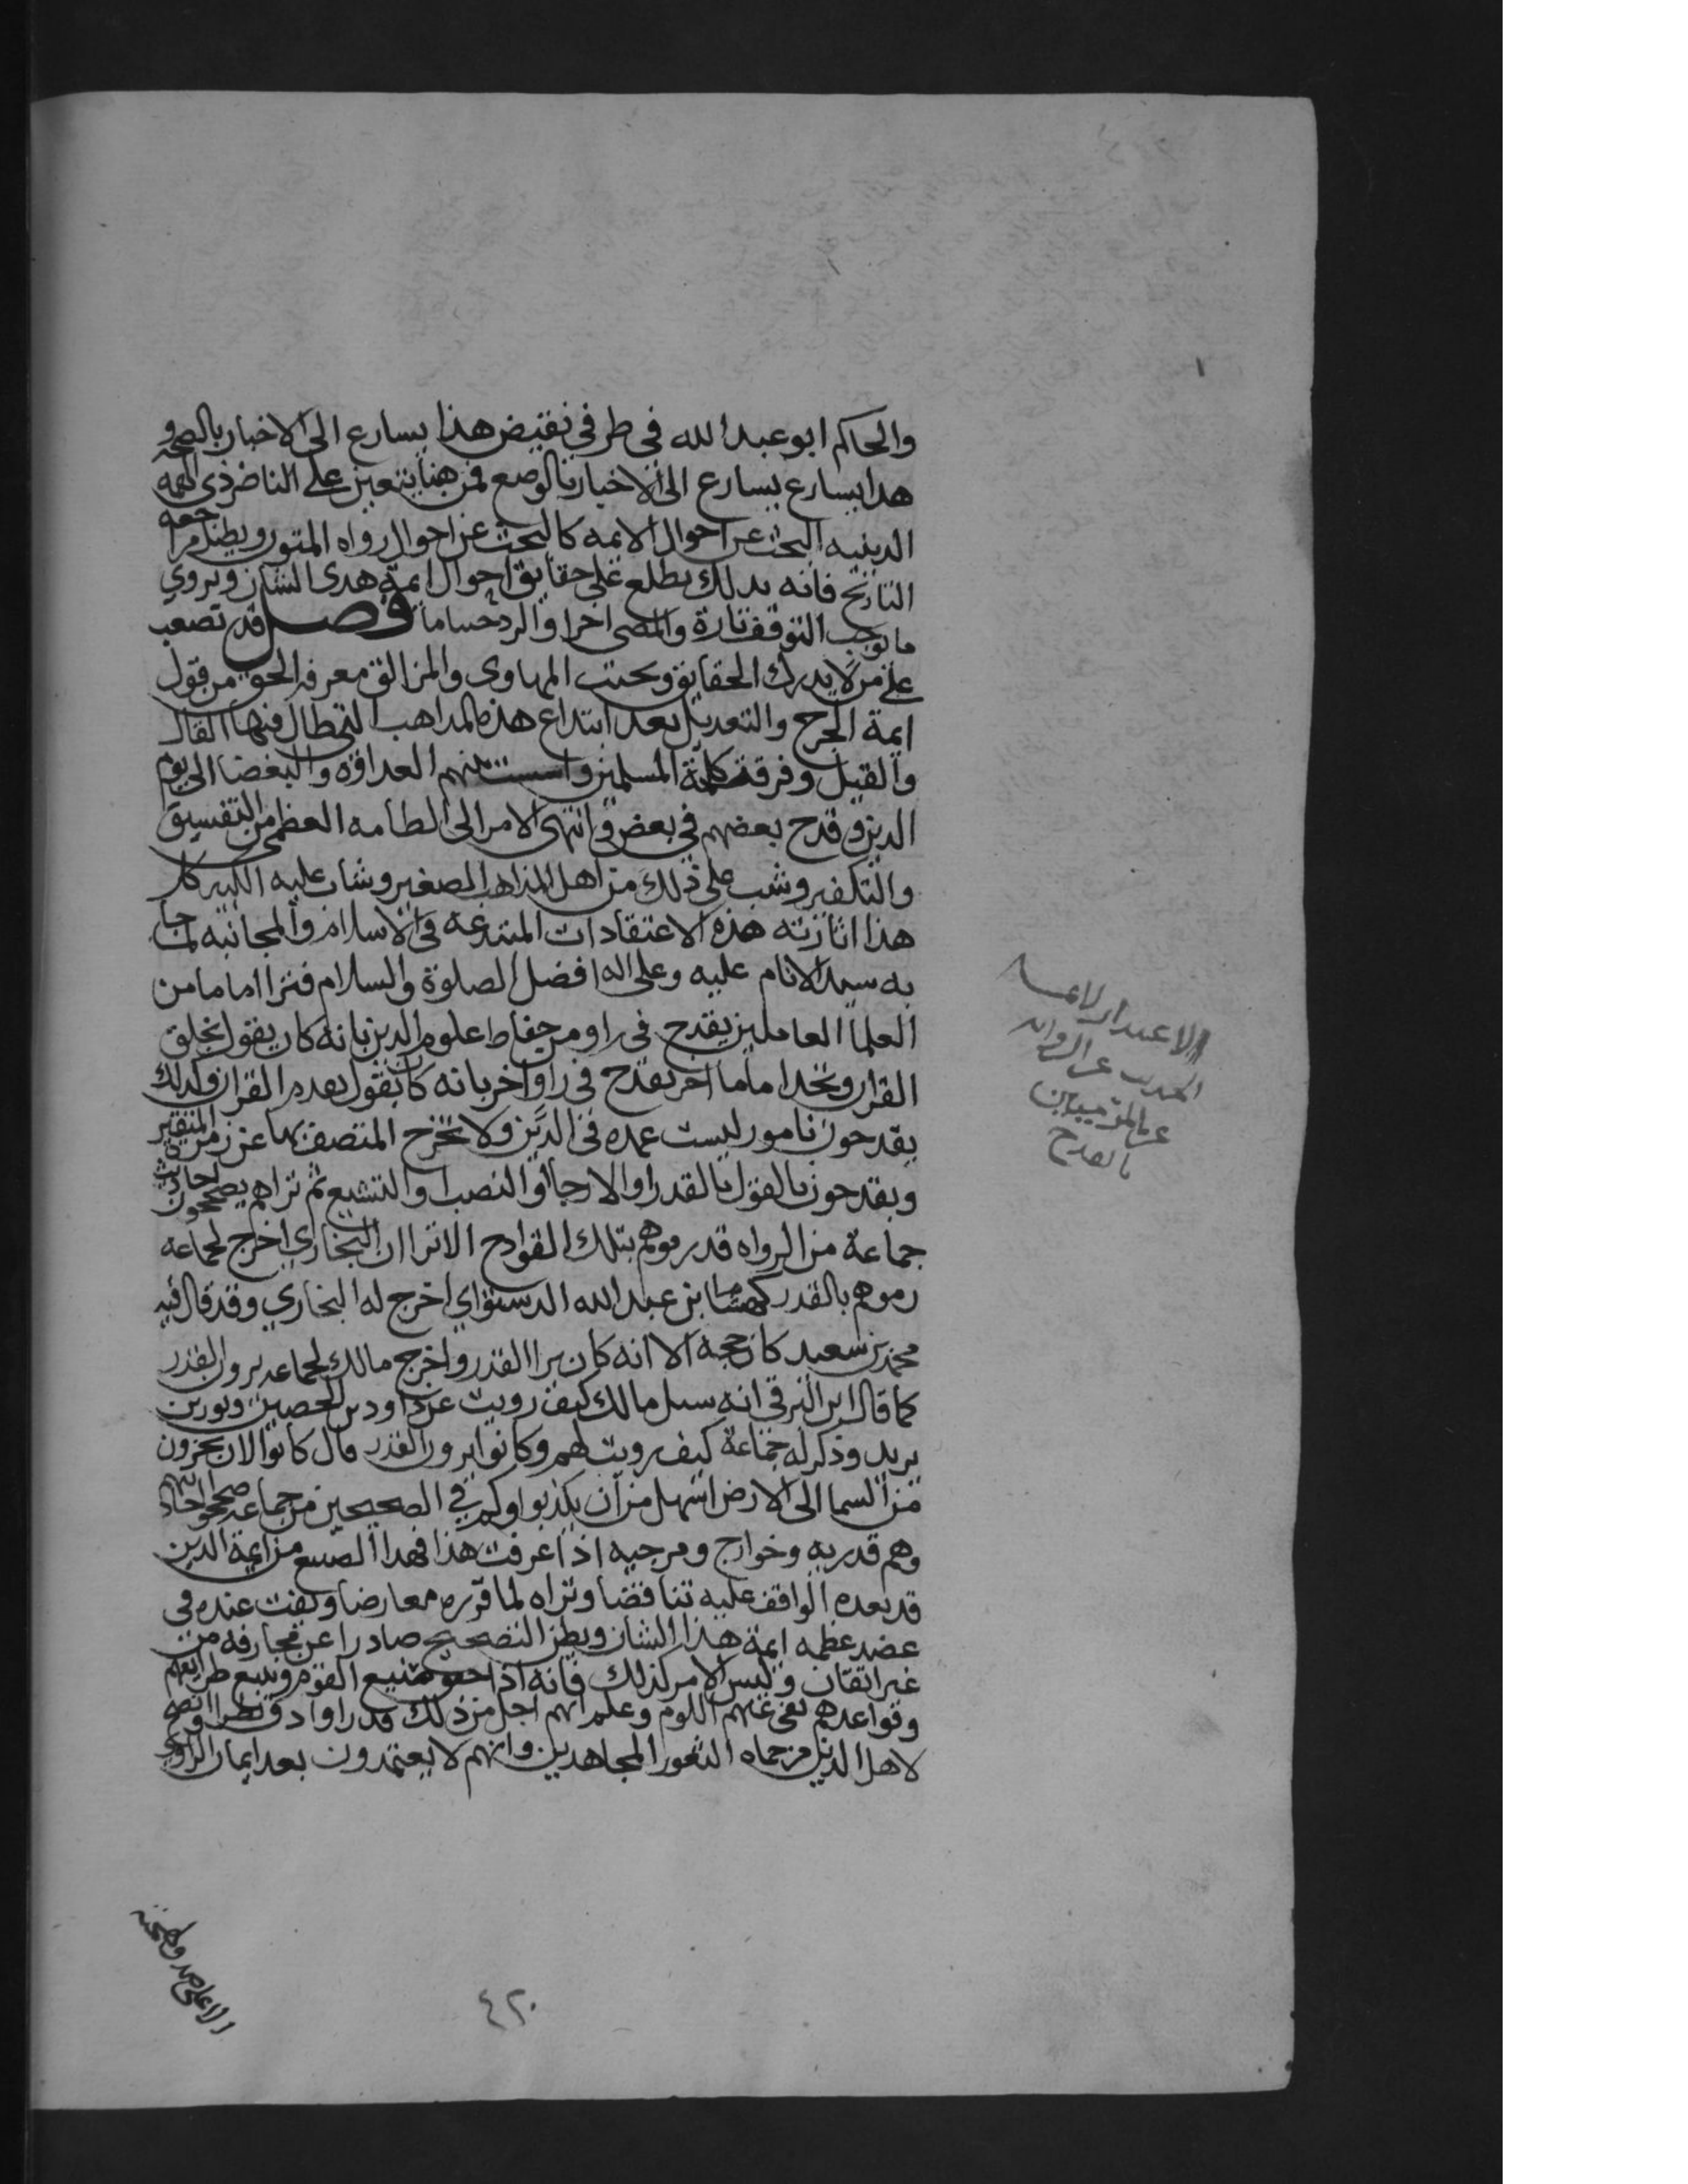 والحاكم ابو عبد الله في طرفي نقيض هذا يسارع الى الاخبار بالصحه و
هدا يسارع يسارع الى الاخبار بالوضع فمن هنا يتعين على الناضر ذي الهمه
الدينيه البحث عن احوال الايمه كالبحث عن احوال رواه المتون ويطيل مراجعه
التاريخ فانه بدلك يطلع على حقايق احوال ايمة هدى الشان ويروي
ما يوجب التوقف تارة والمضي اخرا والرد فصل قد تصعب
على من لا يدرك الحقايق ويجتنب المهاوى والمزالق معرفه الحق من قول
ايمة الجرح والتعديل بعد ابتداع هذه المداهب التي طال فيها القال
والقيل وفرقة كلمة المسلمين العداوه والبغضا الى يوم
الدين وقدح بعضهم في بعض وانتهى الامر الى الطامه العظمى من التفسيق
والتكفير وشب على ذلك من اهل المذاهب الصغير وشاب عليه الكبير كل
هذا اثارته هذه الاعتقادات المبتدعه في الاسلام والمجانبه لما جا
به سيد الانام عليه وعلى اله افضل الصلوة والسلام فترا اماما من
العلما العاملين يقدح في راو من حفاظ علوم الدين بانه كان يقول بخلق
القران وتجدا اماما اخر يقدح في راو اخر بانه كان يقول بقدم القران وكدلك
يقدحون بامور ليست عمده في الدين ولا تخرج المتصف بها عن زمرة المتقين
ويقدحون بالقول بالقدر او الارجا او النصب او التشيع ثم تراهم يصححون احاديث
جماعة من الرواه قد رموهم بتلك القوادح الا ترا ان البخاري اخرج لجماعه
رموهم بالقدر كهشام بن عبد الله الدستواي اخرج له البخاري وقد قال فيه
محمد بن سعيد كان حجة الا انه كان يرا القدر واخرج مالك لجماعه يرون القدر
كما قال ابن البرقي انه سيل مالك كيف رويت عن داود بن الحصين وثور بن
يزيد وذكر له جماعة كيف رويت لهم وكانوا يرون القدر قال كانوا لان يخرون
من السما الى الارض اسهل من ان يكذبوا وكم في الصحيحين من جماعه صححوا احاديثهم
وهم قدريه وخوارج ومرجيه اذا عرفت هذا فهدا الصنيع من ايمة الدين
قد يعده الواقف عليه تناقضا وتراه لما قرره معارضا ويفت عنده في
عضد عظمه ايمة هذا الشان ويظن التصحيح صادرا عن مجازفه من
غير اتقان وليس الامر كذلك فانه اذا صنيع القوم وتتبع طرايقهم
وقواعدهم نفى عنهم اللوم وعلم انهم اجل من ذلك قدرا وادق نظرا وانصح
لاهل الدين من حماه الثغور المجاهدين وانهم لا يعتمدون بعد ايمان الراوي
الا على صدقه
٤٢٠
١
بالقدح